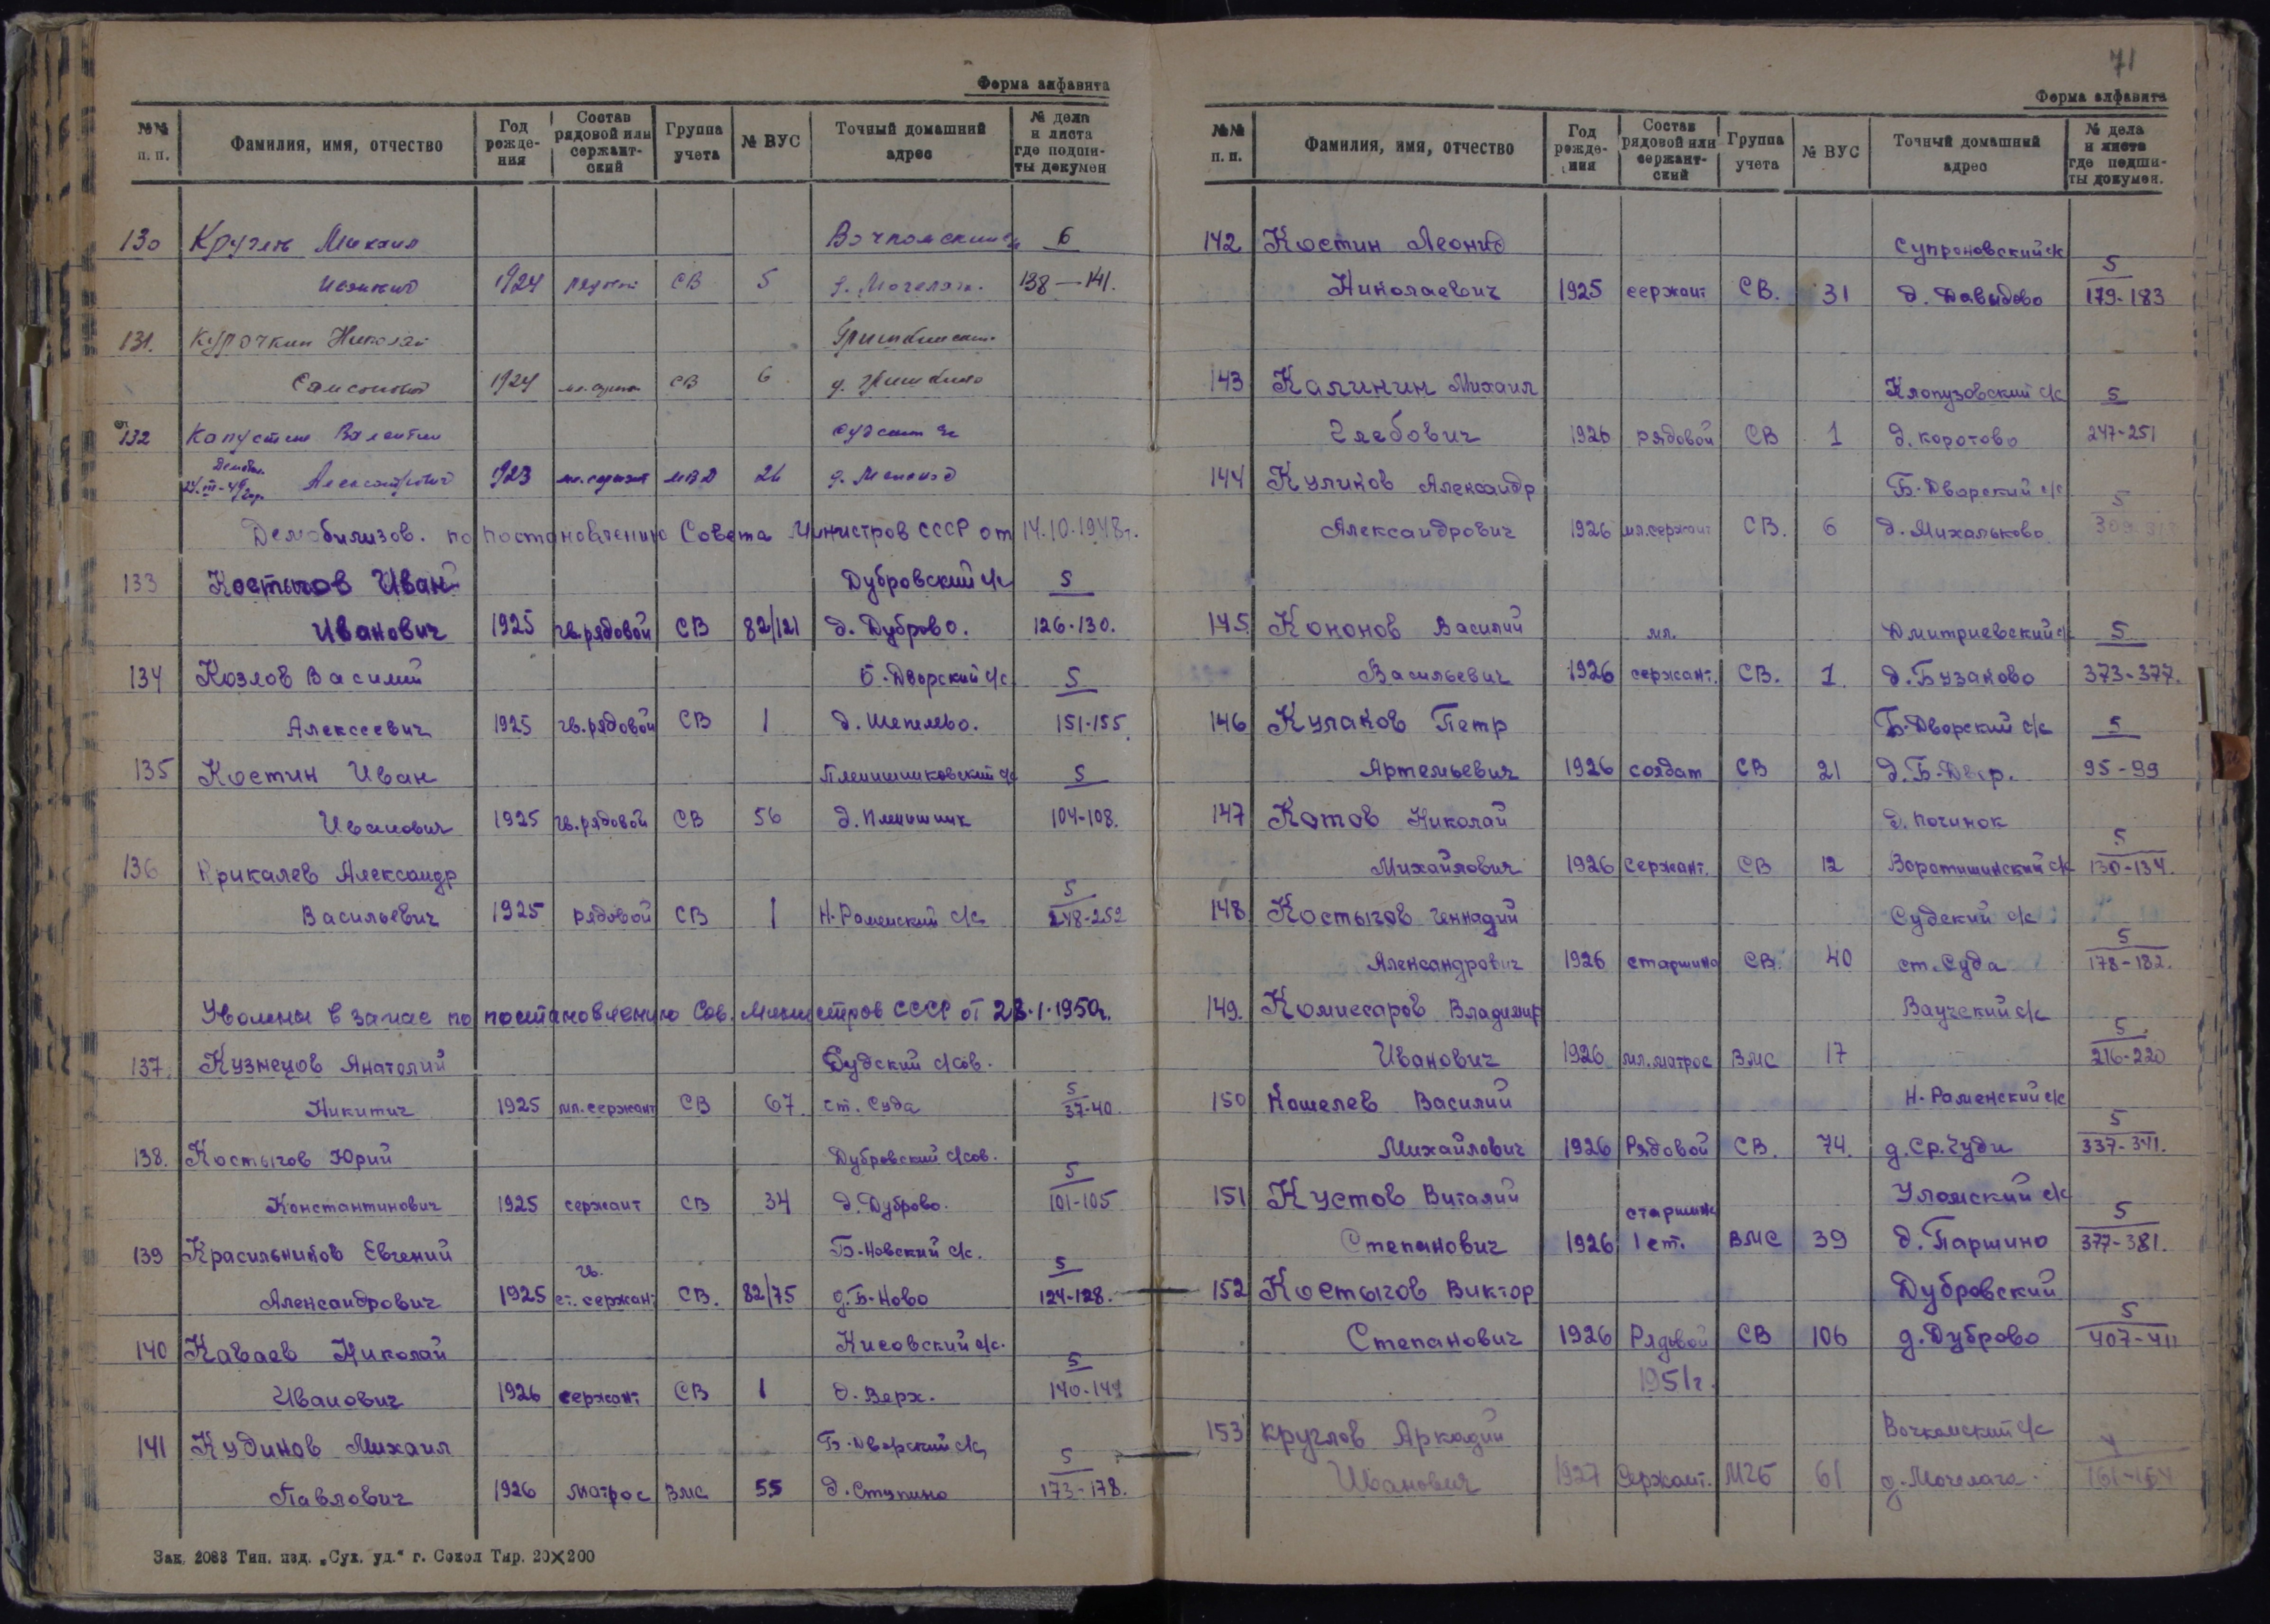 Форма алфавита
№№ п. п. Фамилия, имя, отчество Год рожде-ния Состав рядовой или сержант-ский Группа учета № ВУС Точный домашний адрес № дела и листа где подши-ты докумен
130 Круглов Михаил 6
1924 рядовой СВ 5 138 — 141.
131. Курочкин Николай
Самсонович 1924 мл. сержант СВ 6 д. Гришкино
132 Капустин Валентин
Александрович 1923 мл. сержант МВД 26
Демобилизов. по постановлению Совета Министров СССР от 14.10.1948г.
133 Костыгов Иван Дубровский с/с 5
Иванович 1925 гв. рядовой СВ 82/121 д. Дуброво. 126-130.
134 Козлов Василий Б-Дворский с/с 5
Алексеевич 1925 гв. рядовой СВ 1 д. Шепелево. 151-155.
135 Костин Иван 5
Иванович 1925 гв. рядовой СВ 56 104-108.
136 Крикалев Александр 5
Васильевич 1925 рядовой СВ 1 Н-Раменский с/с 248-252
Уволены в запас по постановлению Сов. Министров СССР от 28.1.1950г.
137. Кузнецов Анатолий Судский с/сов.
Никитич 1925 мл. сержант СВ 67 ст. Суда 5 37-40.
138. Костыгов Юрий Дубровский с/сов.
Константинович 1925 сержант СВ 34 д. Дуброво. 5 101-105
139 Красильников Евгений Б-Новский с/с.
Александрович 1925 гв. ст. сержант СВ. 82/75 д. Б-Ново 5 124-128.
140 Каваев Николай Кисовский с/с.
Иванович 1926 сержант СВ 1 д. Верх. 5
141 Кудинов Михаил Б-Дворский с/с
Павлович 1926 матрос ВМС 55 д. Ступино 5 173-178.
Зак. 2083 Тип. изд. „Сух. уд.“ г. Сокол Тир. 20×200
71
Форма алфавита
№№ п. п. Фамилия, имя, отчество Год рожде-ния Состав рядовой или сержант-ский Группа учета № ВУС Точный домашний адрес № дела и листа где подши-ты докумен.
142 Костин Леонид
Николаевич 1925 сержант СВ. 31 д. Давыдово 5 179-183
143 Калинин Михаил Клопузовский с/с 5
Глебович 1926 рядовой СВ 1 д. Коротово 247-251
144 Куликов Александр Б-Дворский с/с 5
Александрович 1926 мл. сержант СВ. 6 д. Михальково
145. Кононов Василий Дмитриевский с/с 5
Васильевич 1926 мл. сержант. СВ. 1. д. Бузаково 373-377.
146 Кулаков Петр Б-Дворский с/с 5
Артемьевич 1926 солдат СВ 21 д. Б-Двор. 95-99
147 Котов Николай д. Починок
Михайлович 1926 сержант. СВ 12 Воротишинский с/с 5 130-134.
148 Костыгов Геннадий Судский с/с
Александрович 1926 старшина СВ. 40 ст. Суда 5 178-182.
149. Комиссаров Владимир Ваучский с/с
Иванович 1926 мл. матрос ВМС 17 5 216-220
150 Кошелев Василий Н-Раменский с/с
Михайлович 1926 Рядовой СВ. 74. д. Ср. Чуди 5 337-341.
151 Кустов Виталий Уломский с/с
Степанович 1926 старшина 1 ст. ВМС 39 д. Паршино 5 377-381.
152 Костыгов Виктор Дубровский
Степанович 1926 Рядовой СВ 106 д. Дуброво 5 407-411
1951г.
153 Круглов Аркадий Вочкомский с/с
Иванович 1927 Сержант. МГБ 61